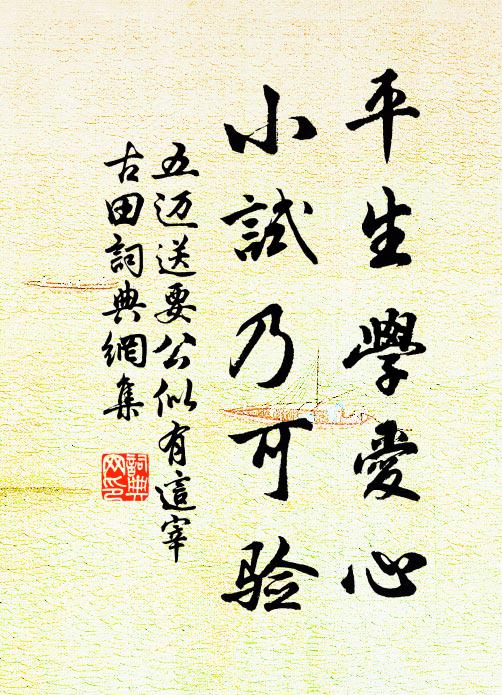 平生學愛心
小試乃可验
五迈送要公似有這宰
古田詞典網集
詞典网印